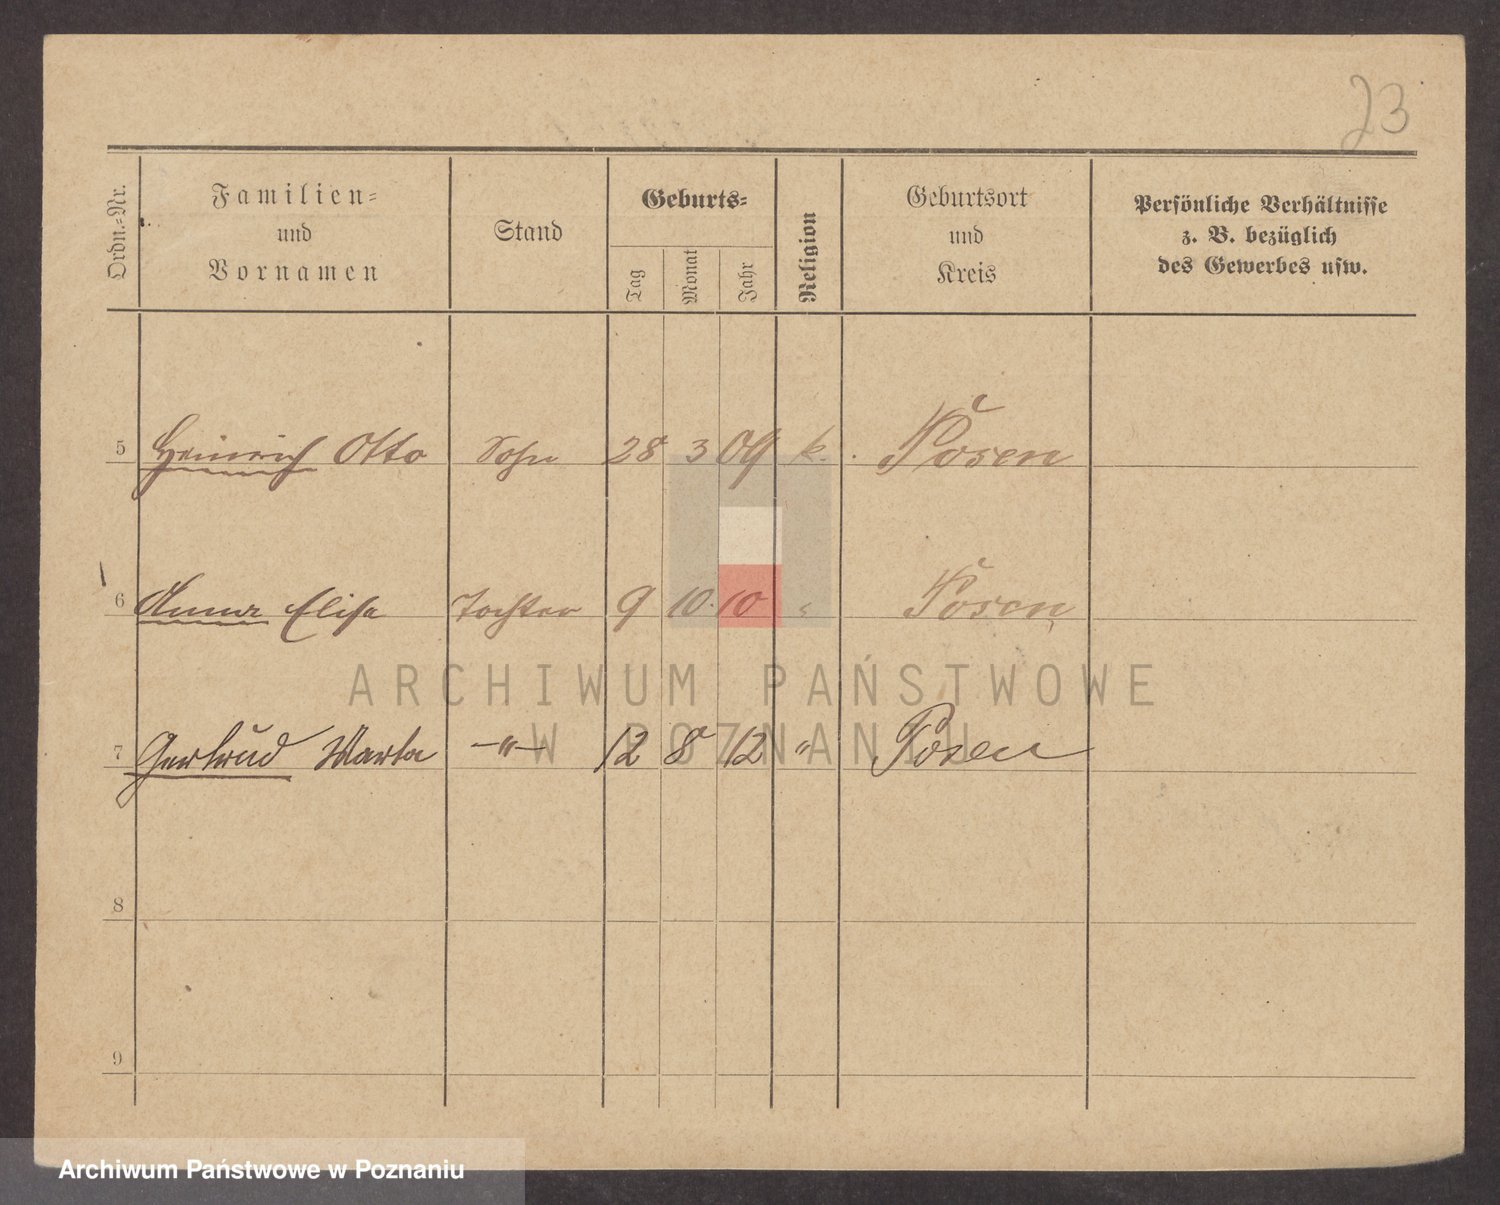 23
Ordn.-Nr.
Familien-
und
Vornamen
Stand
Geburts-
Tag
Monat
Jahr
Religion
Geburtsort
und
Kreis
Persönliche Verhältnisse
z. B. bezüglich
des Gewerbes usw.
5 Heinrich Otto Sohn 28 3 09 k. Posen
6 Anna Elise Tochter 9 10. 10 " Posen
ARCHIWUM PAŃSTWOWE
W POZNANIU
7 Gertrud Marta —"— 12 8 12 " Posen
8
9
Archiwum Państwowe w Poznaniu